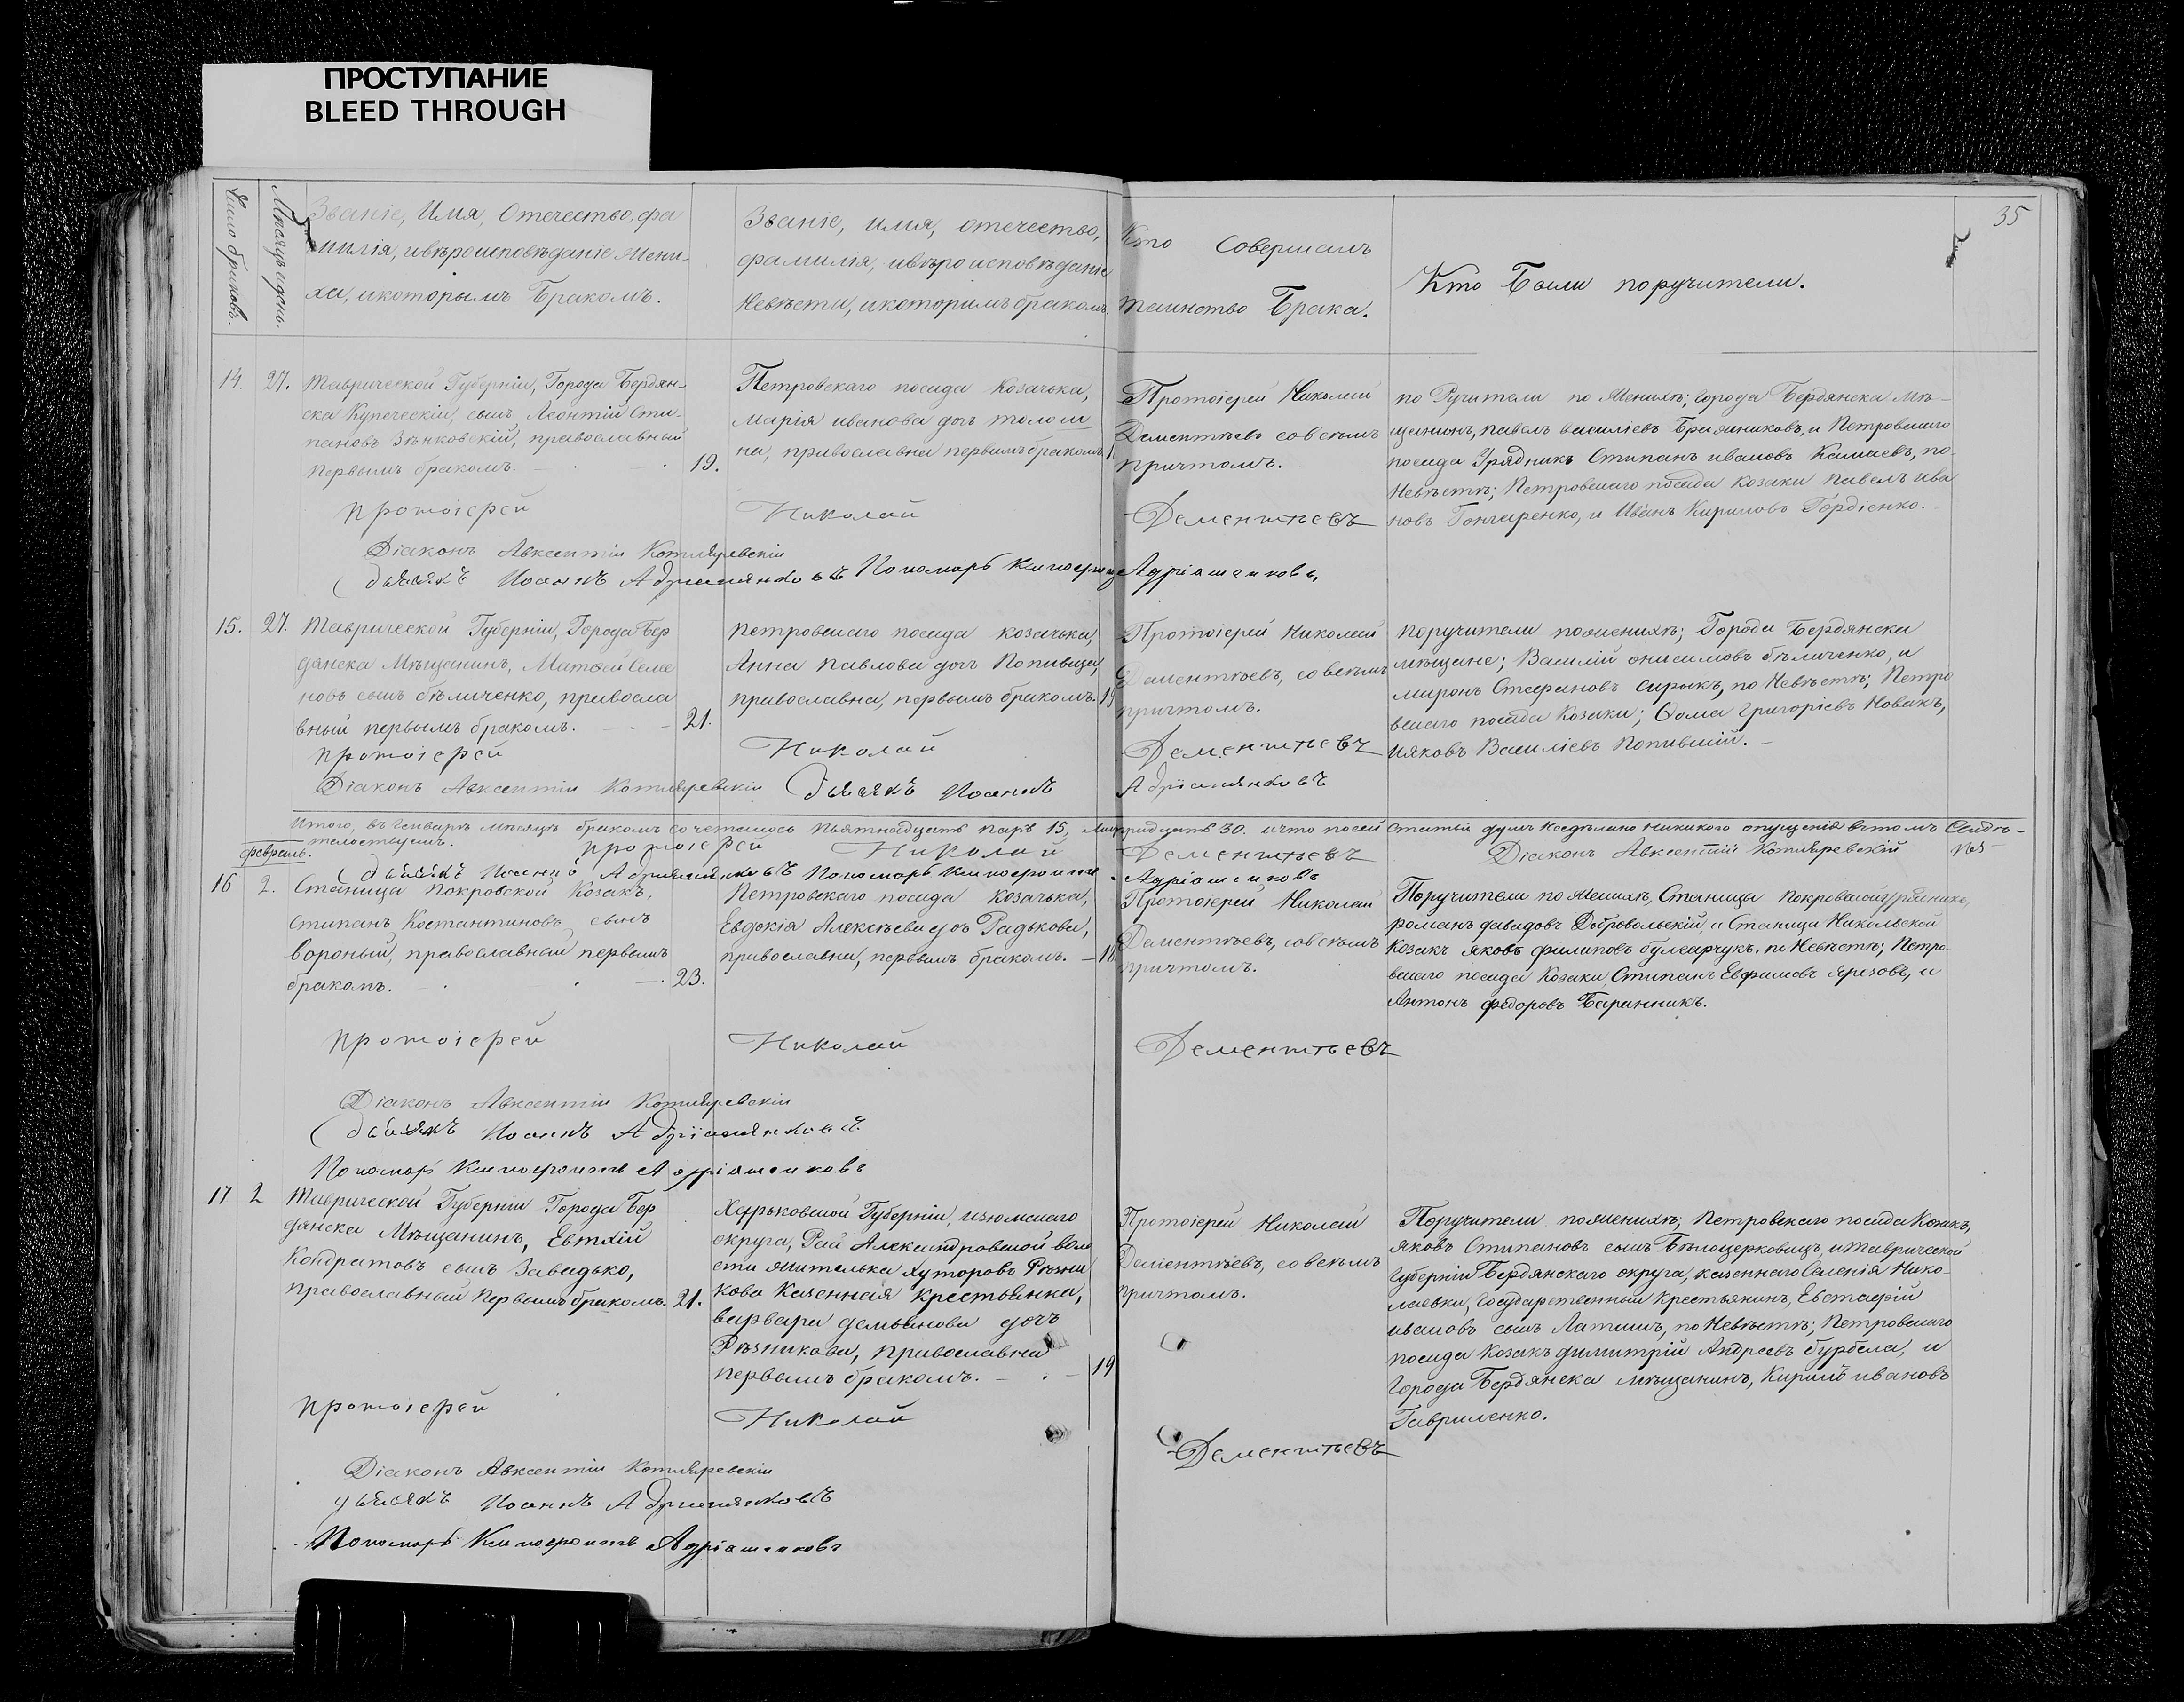 ПРОСТУПАНИЕ
BLEED THROUGH
35
Число браковъ.
Мѣсяцъ и день.
Званіе, Имя, Отечество, фа
милія, ивѣроисповѣданіе Жени-
ха, икоторымъ Бракомъ.
Званіе, имя, отечество,
фамилія, ивѣроисповѣданіе
Невѣсты, икоторимъ бракомъ.
Кто Совершалъ
таинство Брака.
Кто Были поручители.
14. 27.
Таврической Губерніи, Города Бердян-
ска Купеческій, сынъ Леонтій Сти-
пановъ Зѣнковскій, православный
первымъ бракомъ.
19.
Петровскаго посада Козачька,
Марія иванова дочь
на, православна первымъ бракомъ
Протоіерей Николай
Дементѣевъ совсѣмъ
причтомъ.
по Ручители по Женихѣ; города Бердянска Мѣ-
щанинъ, павелъ василіевъ и Петровскаго
посада Урядникъ Стипанъ ивановъ Камаевъ, по-
Невѣстѣ; Петровскаго посада козаки павелъ ива
новъ Гончаренко, и Иванъ Кириловъ Гордіенко.
протоіерей Николай Дементьевъ
Діаконъ Авксентій Котляревскій
дьячекъ Иоаннъ Адріашенковъ Пономарь Ксенофонтъ Адріашенковъ
15. 27.
Таврической Губерніи, Города Бер
дянска Мѣщанинъ, Матфей Семе
новъ сынъ бѣличенко, правосла
вный первымъ бракомъ.
21.
петровскаго посада козачька,
Анна Павлова дочь Попивща,
православна, первымъ бракомъ.
19
Протоіерей Николай
Дементѣевъ, со всѣмъ
причтомъ.
поручители поженихѣ; Города Бердянска
мѣщане; Василій онисимовъ бѣличенко, и
миронъ Стефановъ Сирыкъ, по Невѣстѣ; Петро
вскаго посада Козаки; Ѳома Григоріевъ Новакъ,
ияковъ Василіевъ Попившій.
протоіерей Николай Дементьевъ
Діаконъ Авксентій Котляревскій дьячекъ Иоаннъ Адріашенковъ
Итого, въ Генварѣ мѣсяцѣ бракомъ сочеталось Пьятнадцать паръ 15, лицъ тридцать 30. ичто посей статьи несдѣлано никакого опущенія вътомъ Свидѣ-
тельствуемъ. протоіерей Николай Дементьевъ Діаконъ Авксентій Котляревскій
февраль.
дьячекъ Иоаннъ Адріашенковъ Пономарь Ксенофонтъ Адріашенковъ
16 2.
Станица Покровской Козакъ,
Стипанъ Костантиновъ сынъ
вороный, православный первымъ
бракомъ.
23.
Петровскаго посада Козачька,
Евдокія Алексѣева дочь Радькова,
православна, первымъ бракомъ.
18
Протоіерей Николай
Дементѣевъ, совсѣмъ
причтомъ.
Поручители по Женихѣ, Станицы Покровской урядникъ,
романъ давидовъ Добровольскій, и Станица Никольской
Козакъ яковъ филиповъ булгарчукъ. по Невѣстѣ; Петро-
вскаго посада Козаки, Стипанъ Евфимовъ ярезовъ, и
Антонъ федоровъ Баранникъ.
протоіерей Николай Дементьевъ
Діаконъ Авксентій Котляревскій
дьячекъ Иоаннъ Адріашенковъ
Пономарь Ксенофонтъ Адріашенковъ
17 2
Таврической Губерніи Города Бер
дянска Мѣщанинъ, Евтхій
Кондратовъ сынъ Завадько,
православный первымъ бракомъ.
21.
Харьковской Губерніи, изюмскаго
округа, Рай Александровской воло
сти жителька хуторовъ Рѣзни
кова Казенная Крестьянка,
варвара демьянова дочь
Рѣзникова, православна
первымъ бракомъ.
19
Протоіерей Николай
Дементѣевъ, совсѣмъ
причтомъ.
Поручители поженихѣ; Петровскаго посада Козакъ,
яковъ Стипановъ сынъ Бѣлоцерковецъ, и Таврической
Губерніи Бердянскаго округа, казеннаго Селенія Нико-
лаевки, Государственный Крестьянинъ, Евстафій
ивановъ сынъ Латышъ, по Невѣстѣ; Петровскаго
посада Козакъ димитрій Андреевъ бурбела, и
города Бердянска мѣщанинъ, Кирилъ ивановъ
Гавриленко.
протоіерей Николай Дементьевъ
Діаконъ Авксентій Котляревскій
дьячекъ Иоаннъ Адріашенковъ
Пономарь Ксенофонтъ Адріашенковъ